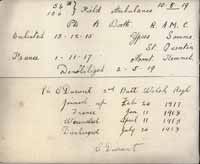 56th } Field Ambulance 10-8-19
106
Pte A Booth R.A.M.C.
Enlisted 13-12-15 Ypres Somme
St. Quentin
France 1-11-17 Mont Kemmel
Demobilized 2-5-19
Pte C Durant 2nd Batt Welsh Regt
Joined up Feb 20 1917
France Jan 11 1918
Wounded April 11 1918
Discharged July 20 1917
C Durant